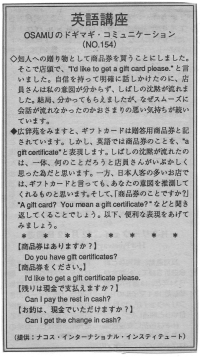 英語講座
OSAMUのドギマギ・コミュニケーション
(NO.154)
◇知人への贈り物として商品券を買うことにしました。
そこで店頭で、"I'd like to get a gift card please." と言
いました。自信を持って明確に話しかけたのに、店
員さんは私の意図が分からず、しばしの沈黙が流れま
した。結局、分かってもらえましたが、なぜスムーズに
会話が流れなかったのかおさまりの悪い気持ちが続い
ています。
◆広辞苑をみますと、ギフトカードは贈答用商品券と記
されています。しかし、英語では商品券のことを、"a
gift certificate"と表現します。しばしの沈黙が流れたの
は、一体、何のことだろうと店員さんがいぶかしく
思った為だと思います。一方、日本人客の多いお店で
は、ギフトカードと言っても、あなたの意図を推測して
くれるものと思います。そして、[商品券のことですか?]
"A gift card? You mean a gift certificate?" などと聞き
返してくることでしょう。以下、便利な表現をあげて
みましょう。
＊ ＊ ＊ ＊ ＊ ＊ ＊ ＊
【商品券はありますか?】
Do you have gift certificates?
【商品券をください。】
I'd like to get a gift certificate please.
【残りは現金で支払えますか?】
Can I pay the rest in cash?
【お釣は、現金でいただけますか?】
Can I get the change in cash?
(提供:ナコス・インターナショナル・インスティテュート)